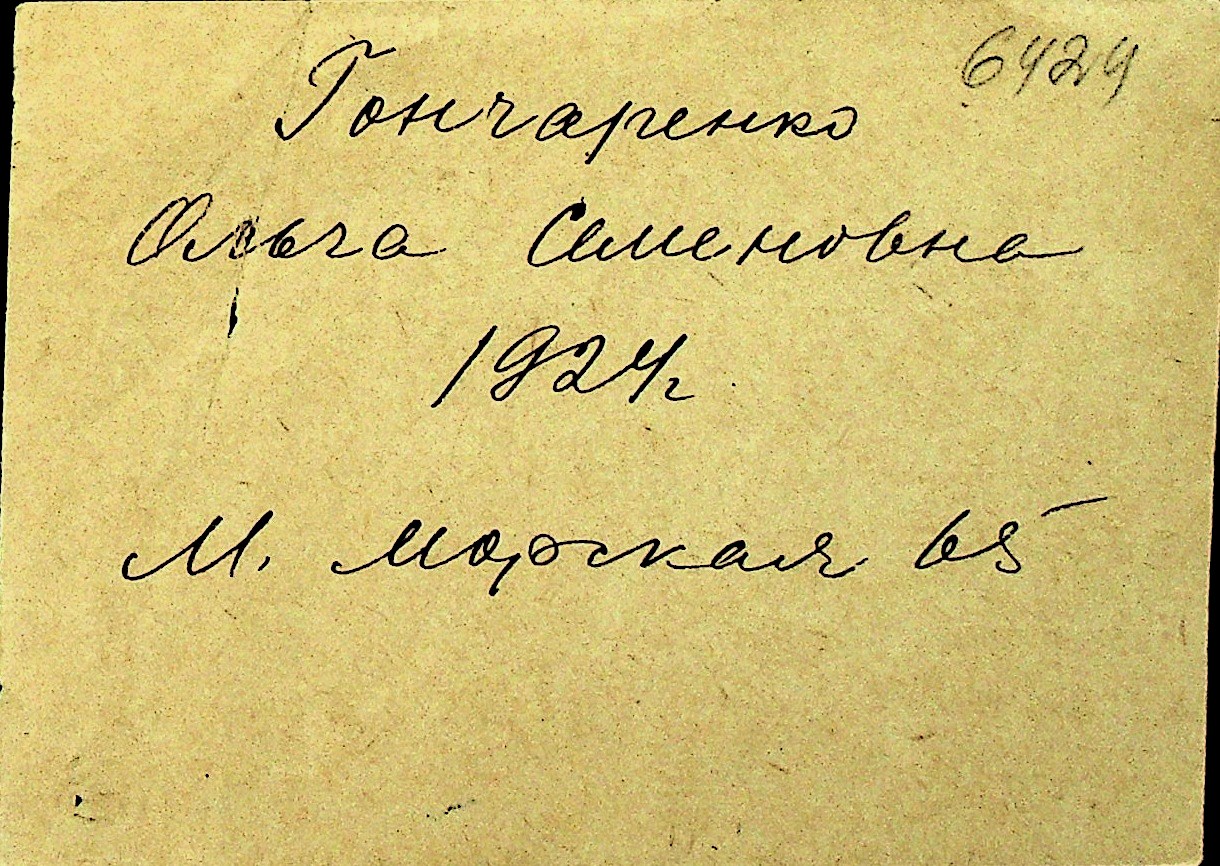 6424
Гончаренко
Ольга Семеновна
1924г
М. Морская 65